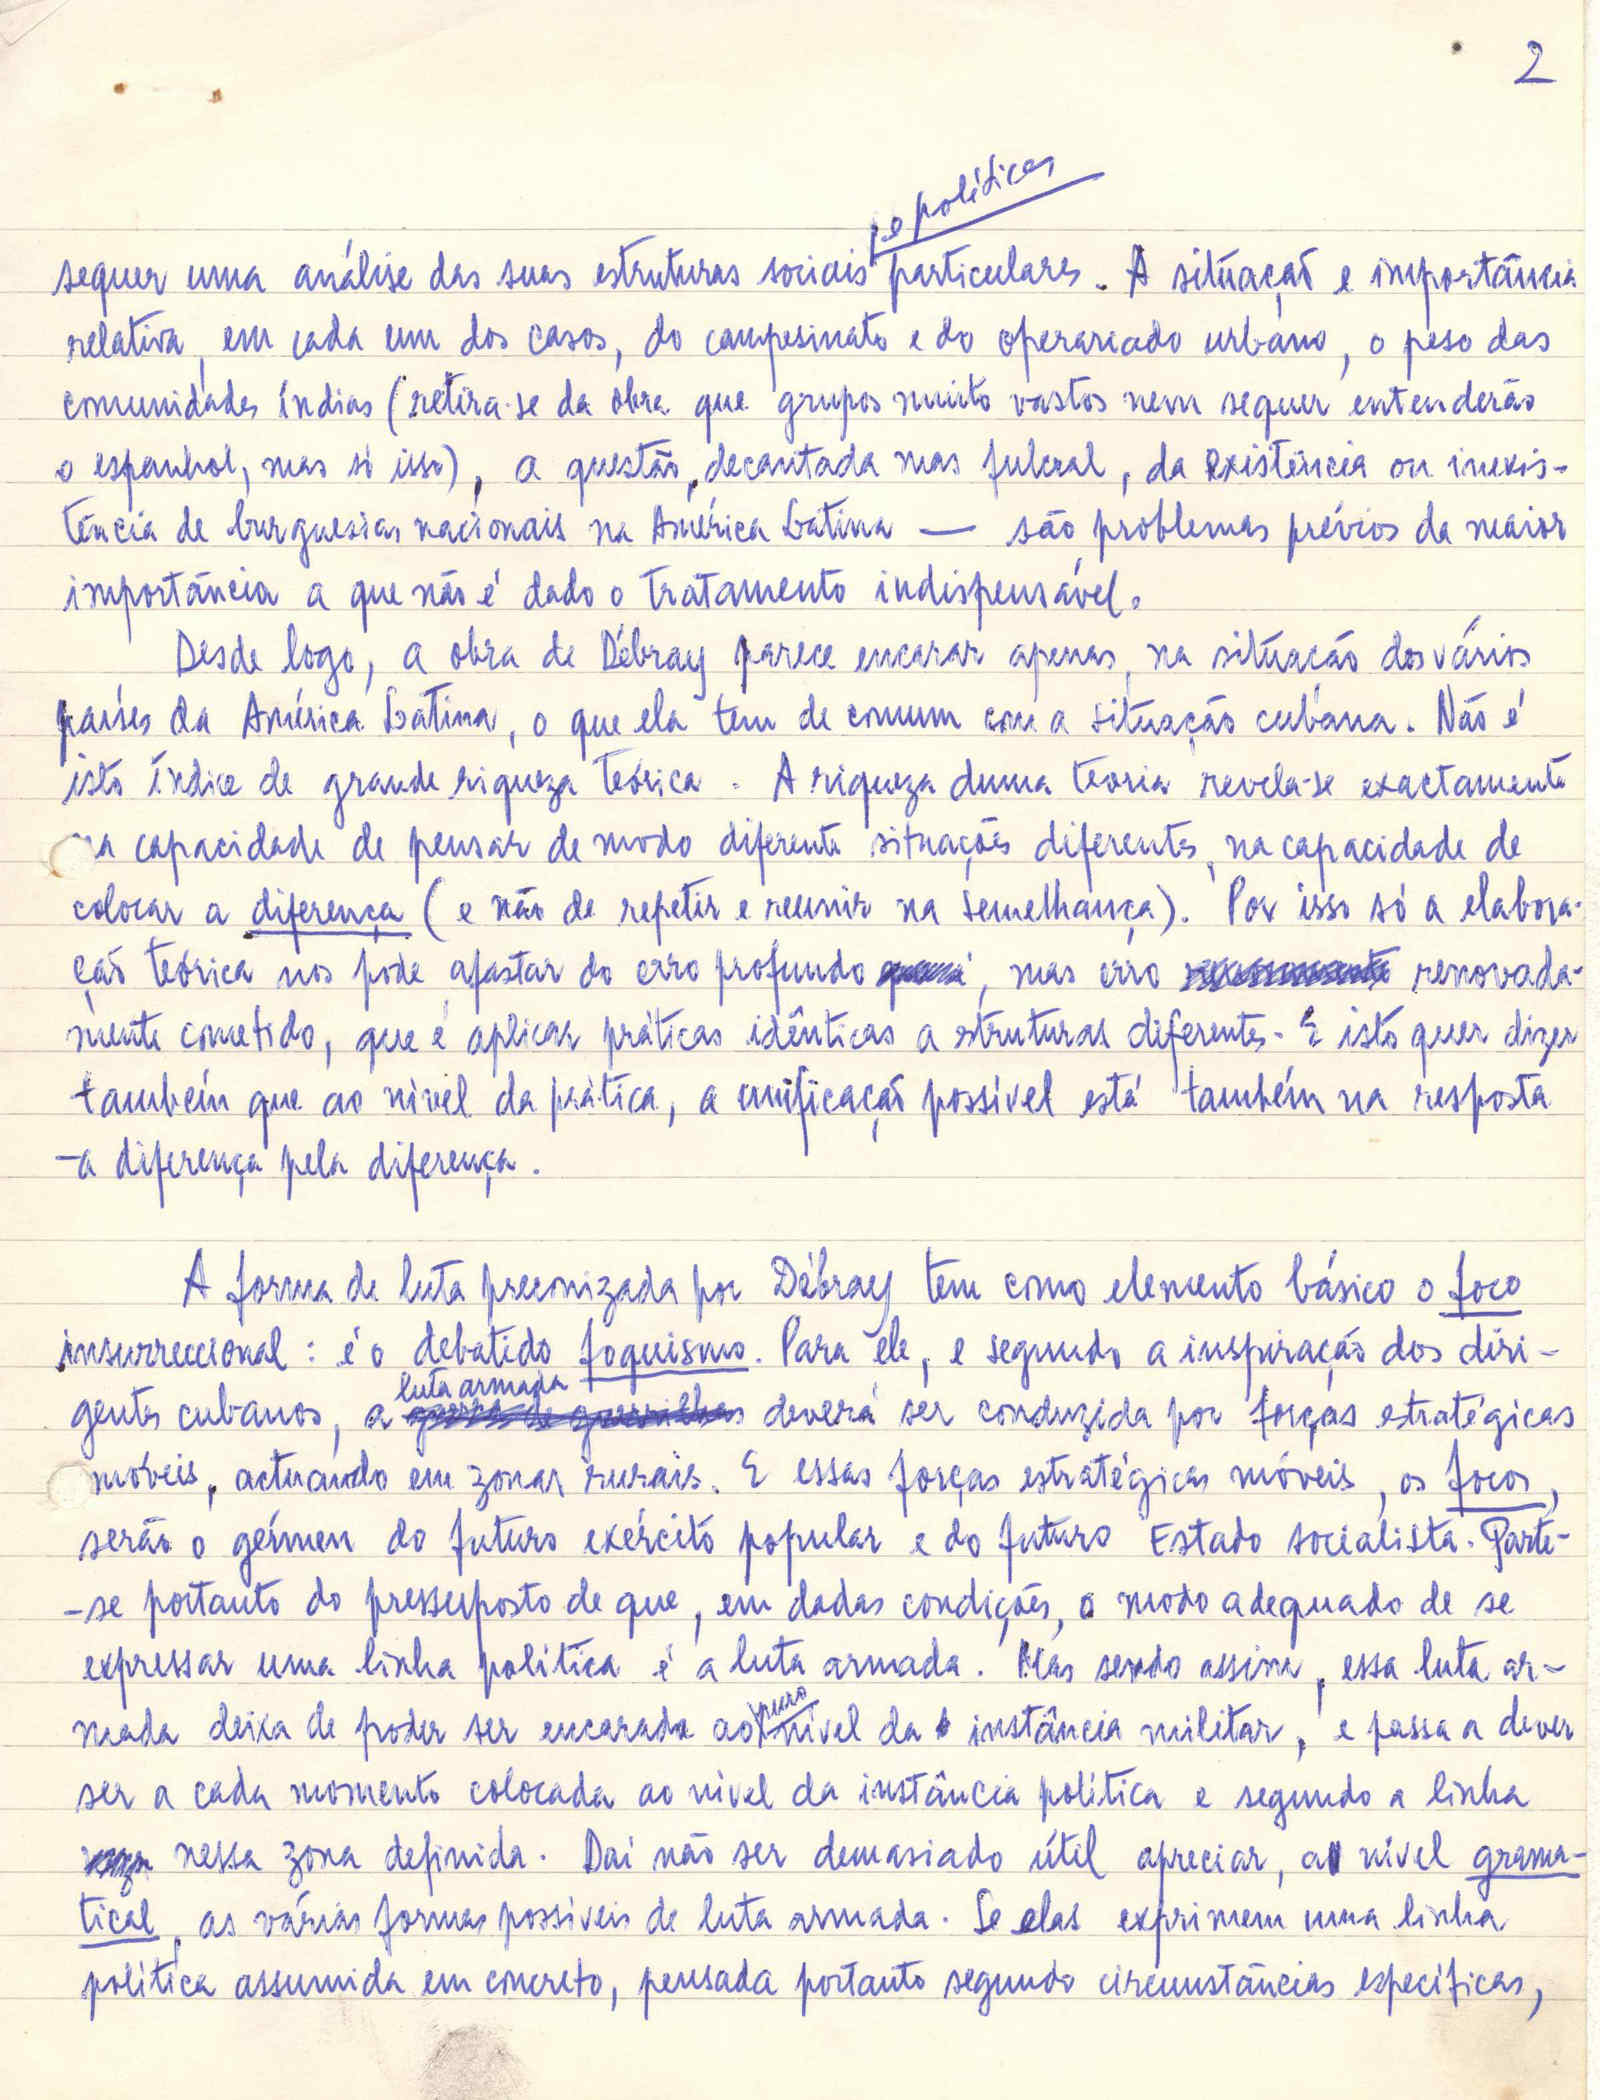 2
e políticas
sequer uma análise das suas estruturas sociais particulares. A situação e importância
relativa, em cada um dos casos, do campesinato e do operariado urbano, o peso das
comunidades índias (retira-se da obra que grupos muito vastos nem sequer entenderão
o espanhol, mas só isso), a questão, decantada mas fulcral, da existência ou inexis-
tência de burguesias nacionais na América Latina — são problemas prévios da maior
importância a que não é dado o tratamento indispensável.
Desde logo, a obra de Débray parece encarar apenas, na situação dos vários
países da América Latina, o que ela tem de comum com a situação cubana. Não é
isto índice de grande riqueza teórica. A riqueza duma teoria revela-se exactamente
na capacidade de pensar de modo diferente situações diferentes, na capacidade de
colocar a diferença (e não de repetir e reunir na semelhança). Por isso só a elabora-
ção teórica nos pode afastar do erro profundo, mas erro renovada-
mente cometido, que é aplicar práticas idênticas a estruturas diferentes. E isto quer dizer
também que ao nível da prática, a unificação possível está também na resposta
-a diferença pela diferença.
A forma de luta preconizada por Débray tem como elemento básico o foco
insurreccional: é o debatido foquismo. Para ele, e segundo a inspiração dos diri-
luta armada
gentes cubanos, a guerra de guerrilhas deverá ser conduzida por forças estratégicas
móveis, actuando em zonas rurais. E essas forças estratégicas móveis, os focos,
serão o gérmen do futuro exército popular e do futuro Estado socialista. Parte-
-se portanto do pressuposto de que, em dadas condições, o modo adequado de se
expressar uma linha política é a luta armada. Mas sendo assim, essa luta ar-
puro
mada deixa de poder ser encarada ao nível da instância militar, e passa a dever
ser a cada momento colocada ao nível da instância política e segundo a linha
nessa zona definida. Daí não ser demasiado útil apreciar, ao nível grama-
tical, as várias formas possíveis de luta armada. Se elas exprimem uma linha
política assumida em concreto, pensada portanto segundo circunstâncias específicas,